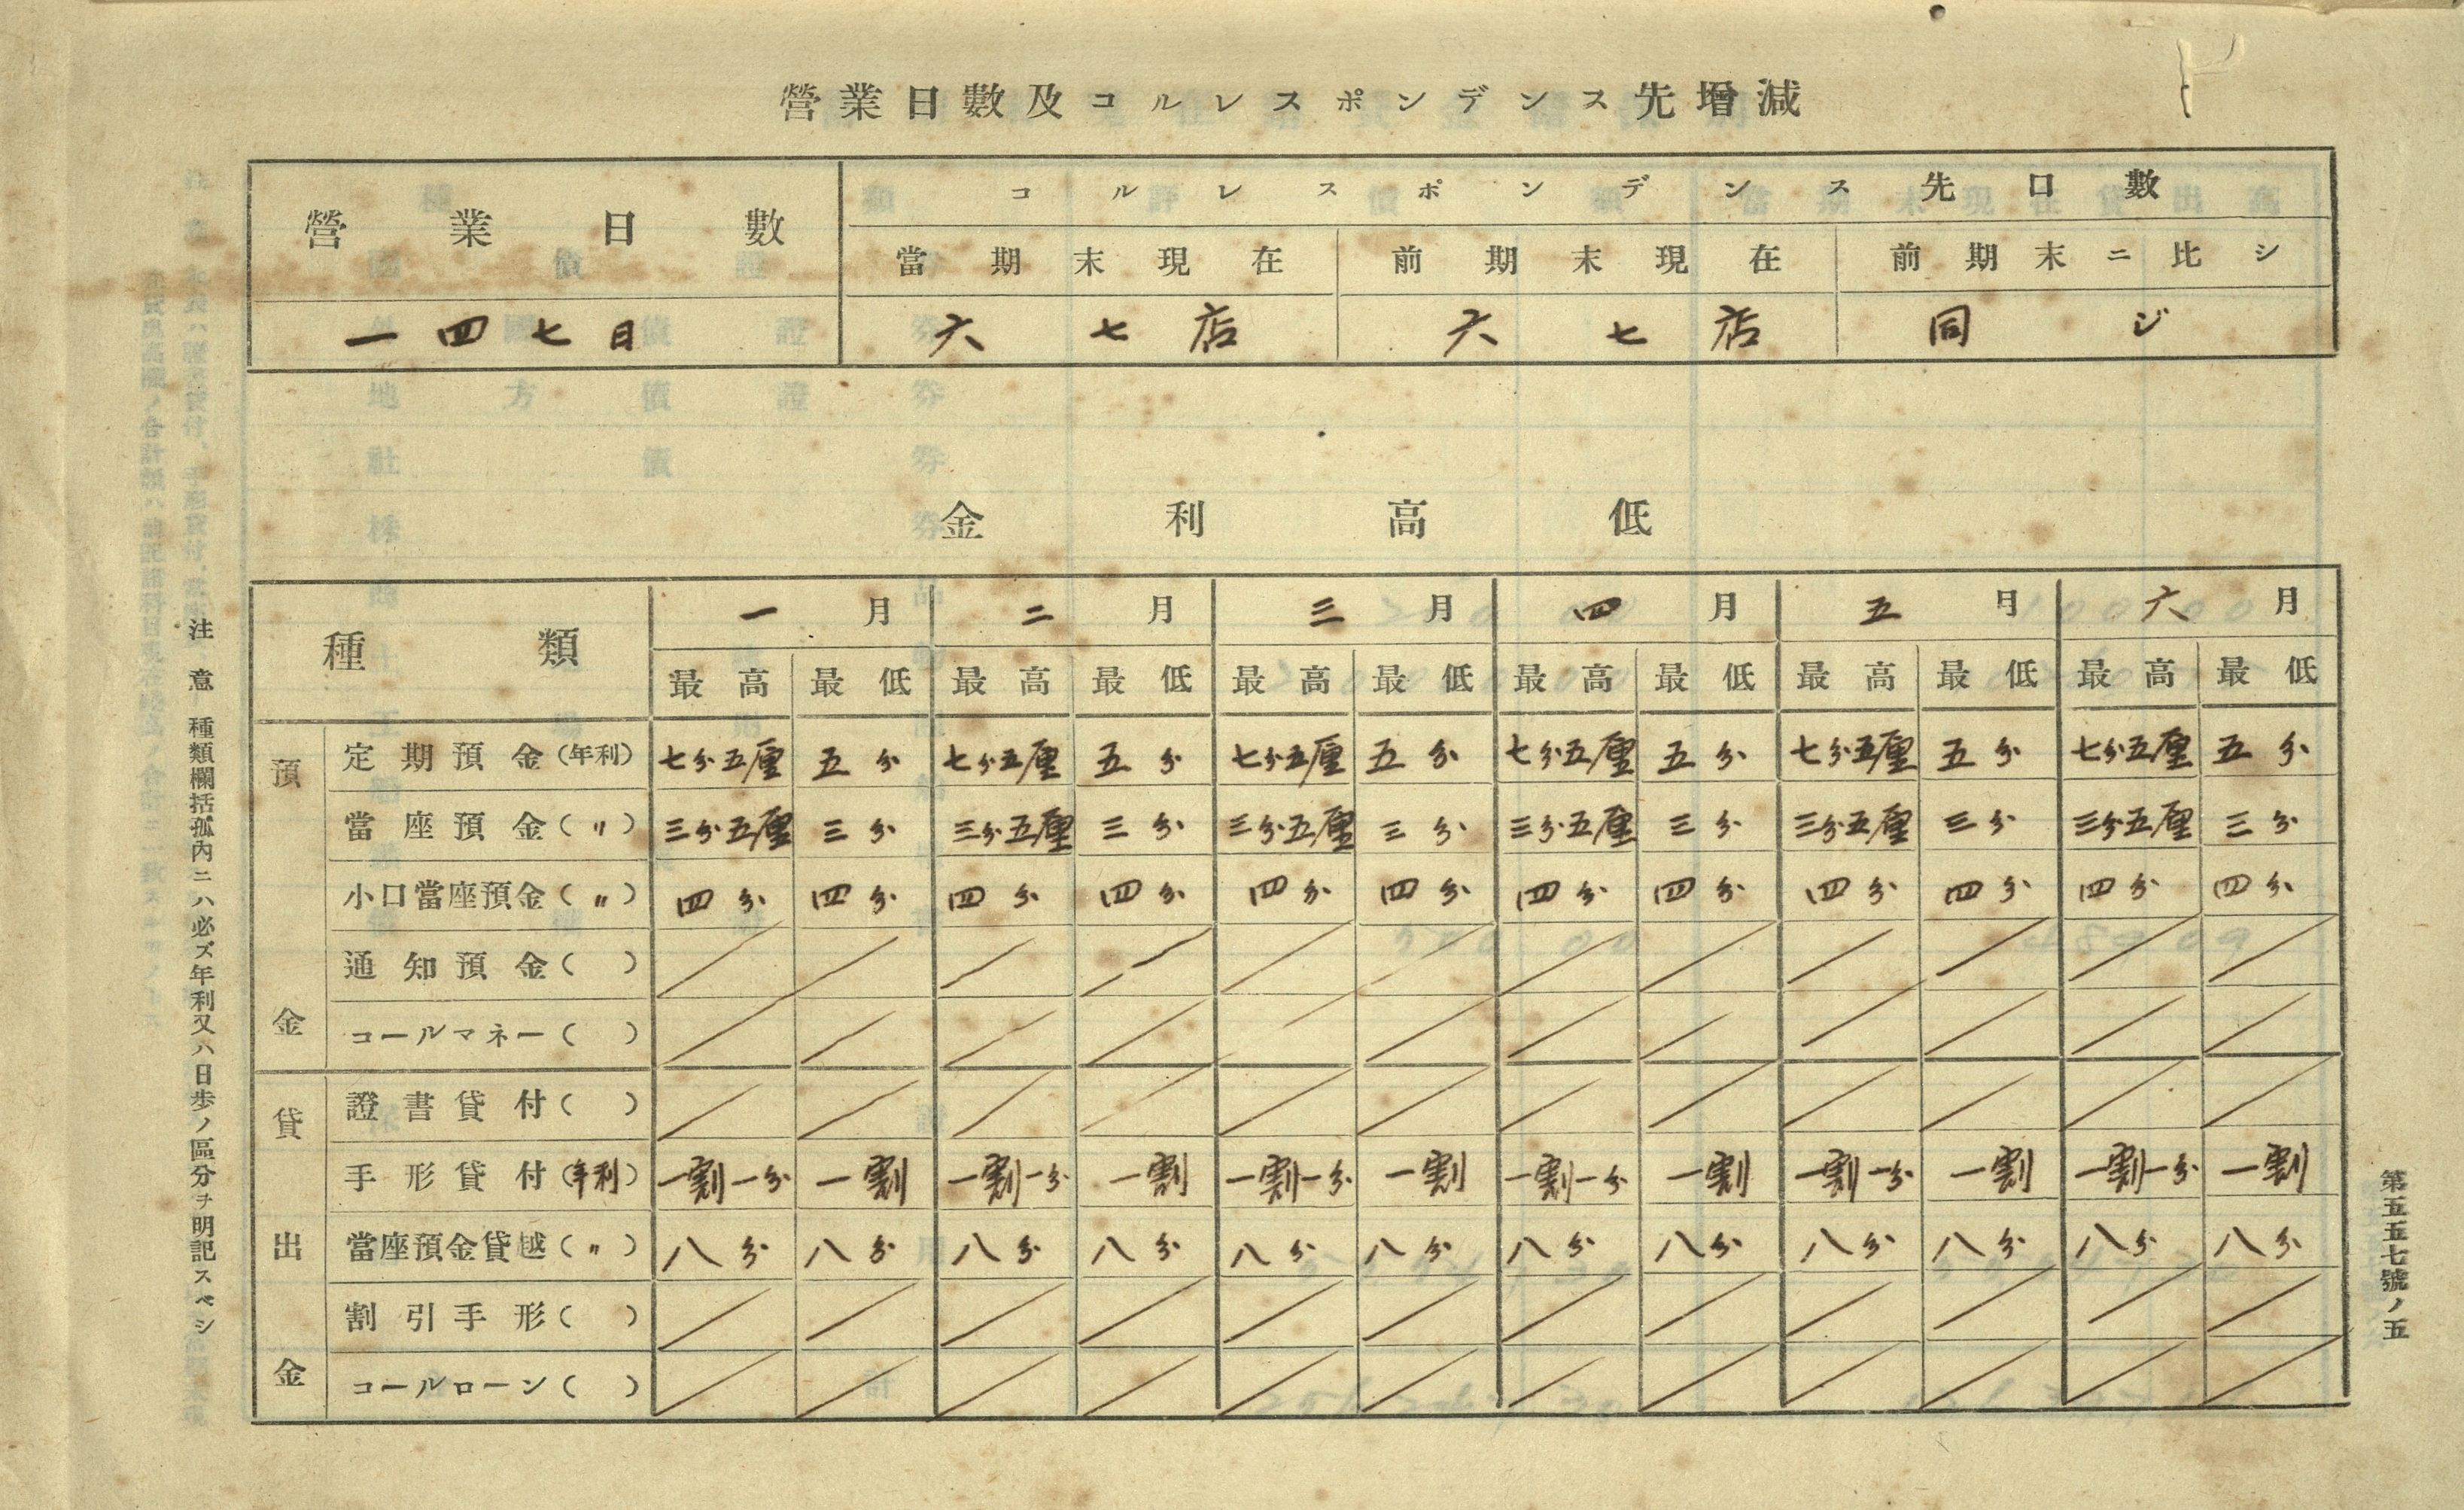 營業日數及コルレスポンデンス先増減
營業日數 コルレスポンデンス先口數
當期末現在 前期末現在 前期末ニ比シ
一四七日 六七店 六七店 同ジ
金利高低
種類 一月 二月 三月 四月 五月 六月
最高 最低 最高 最低 最高 最低 最高 最低 最高 最低 最高 最低
預金
定期預金(年利) 七分五厘 五分 七分五厘 五分 七分五厘 五分 七分五厘 五分 七分五厘 五分 七分五厘 五分
當座預金(〃) 三分五厘 三分 三分五厘 三分 三分五厘 三分 三分五厘 三分 三分五厘 三分 三分五厘 三分
小口當座預金(〃) 四分 四分 四分 四分 四分 四分 四分 四分 四分 四分 四分 四分
通知預金( )
コールマネー( )
貸出金
證書貸付( )
手形貸付(年利) 一割一分 一割 一割一分 一割 一割一分 一割 一割一分 一割 一割一分 一割 一割一分 一割
當座預金貸越(〃) 八分 八分 八分 八分 八分 八分 八分 八分 八分 八分 八分 八分
割引手形( )
コールローン( )
注意 種類欄括孤內ニハ必ズ年利又ハ日歩ノ區分ヲ明記スベシ
第五五七號ノ五